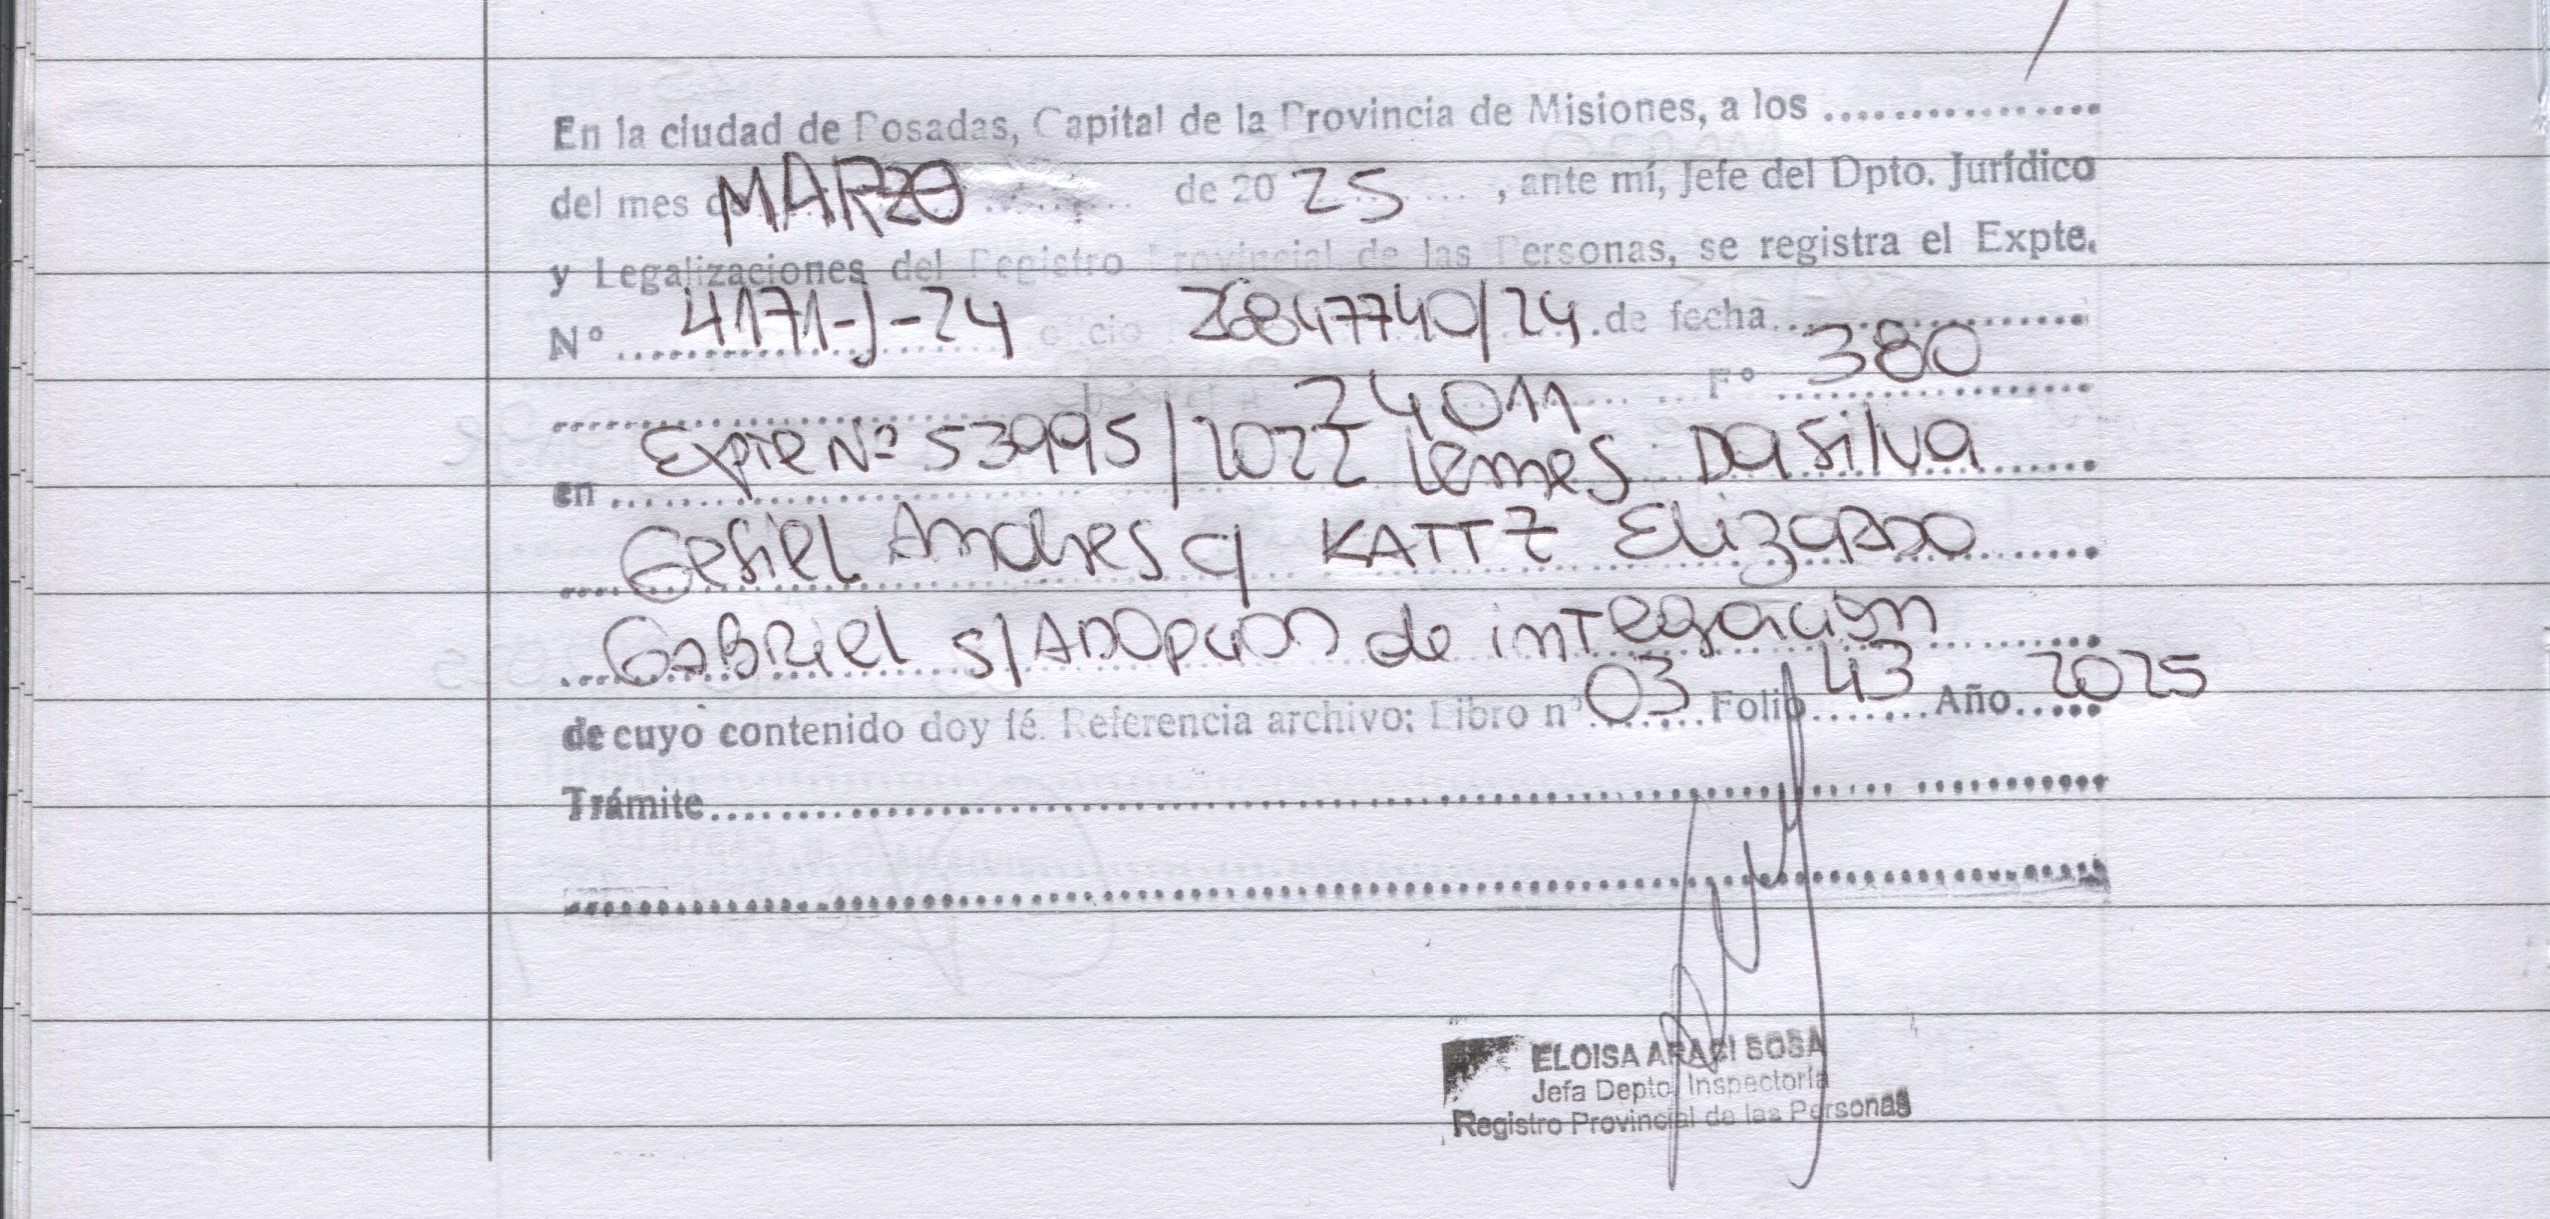 En la ciudad de Posadas, Capital de la Provincia de Misiones, a los ................
del mes de MARZO de 20 25 , ante mí, Jefe del Dpto. Jurídico
y Legalizaciones del Registro Provincial de las Personas, se registra el Expte.
Nº 4171-J-24 oficio 26847740/24 de fecha
24011 Fº 380
en Expte Nº 53995/2022 Lemes Da Silva
Gesiel Andres c/ KATTZ Elizardo
Gabriel s/ADOPCION de integración
de cuyo contenido doy fé. Referencia archivo: Libro nº 03 Folio 43 Año 2025
Trámite
ELOISA ARACI SOSA
Jefa Depto. Inspectoría
Registro Provincial de las Personas